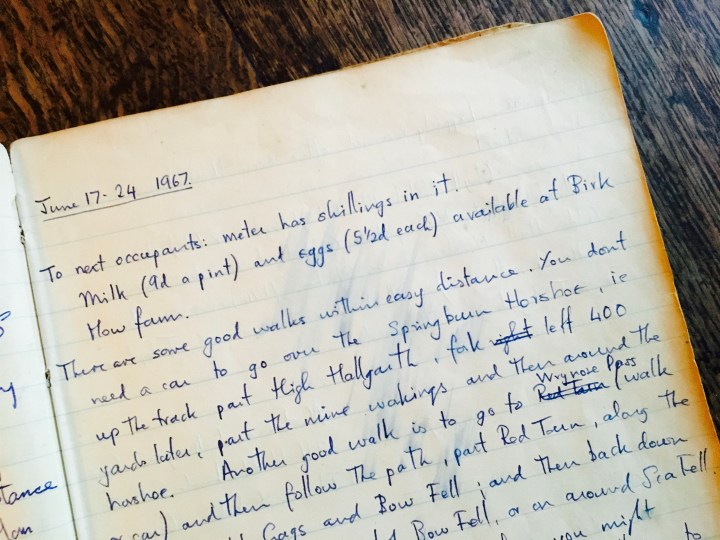 June 17-24 1967.
To next occupants: meter has shillings in it.
Milk (9d a pint) and eggs (5½d each) available at Birk
How farm.
There are some good walks within easy distance. You dont
need a car to go over the Springburn Horshoe, ie
up the track past High Hallgarth, fak right left 400
yards later, past the mine wakings and then around the
horshoe. Another good walk is to go to Red Tarn Wrynose Pass (walk
or car) and then follow the path, past Red Tarn, along the
Crags and Bow Fell; and then back down
Bow Fell, or on around Scafell.
you might
to
tance